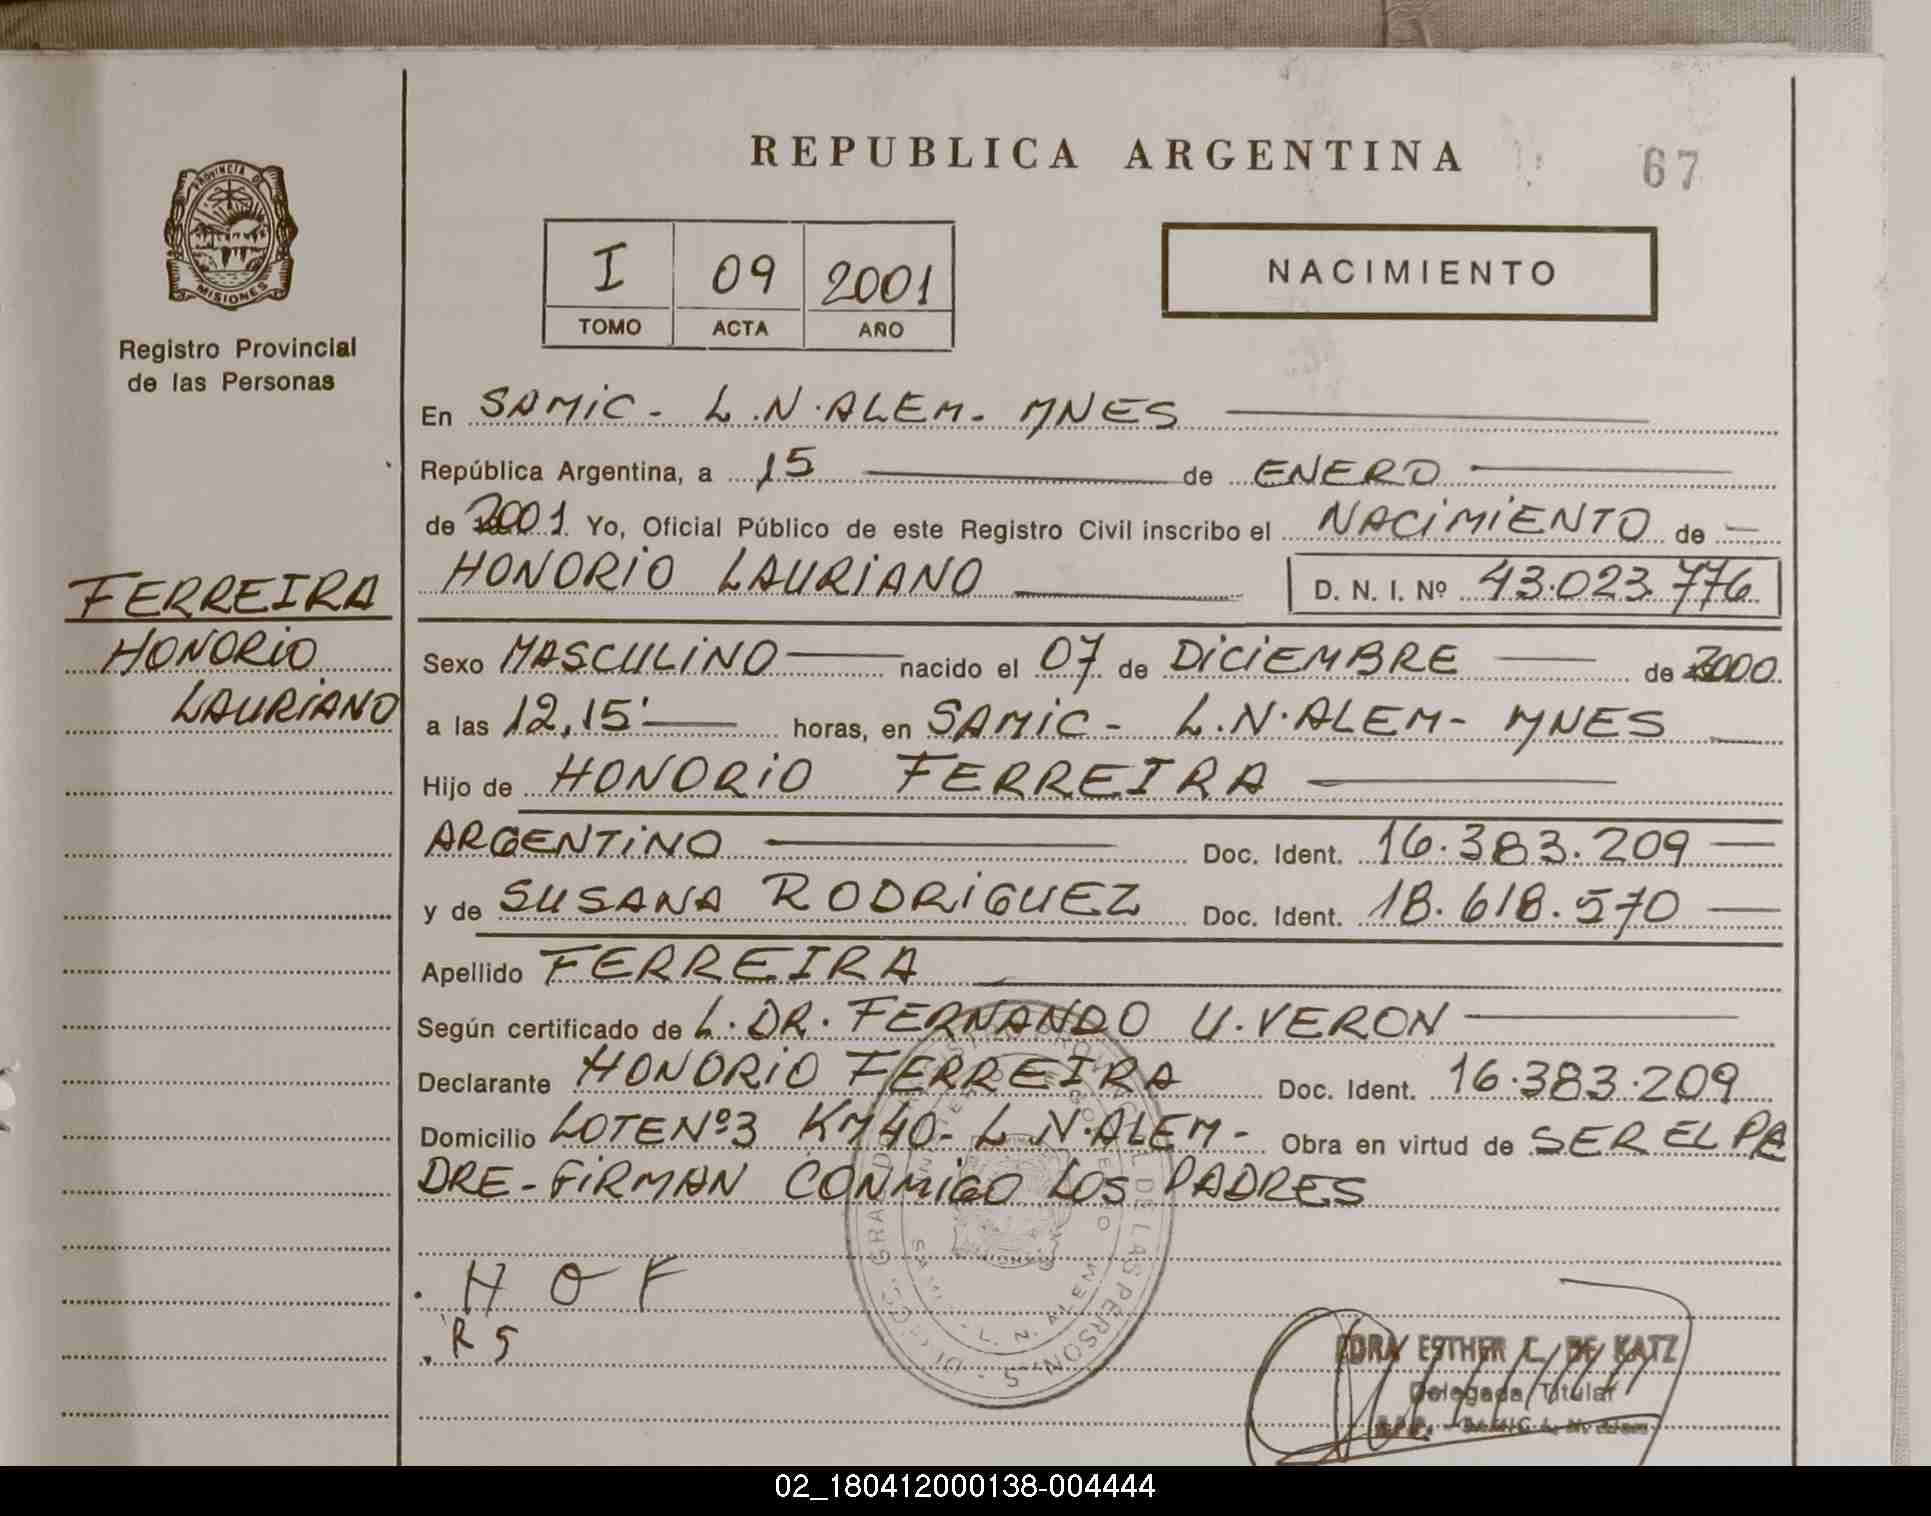 REPUBLICA ARGENTINA
67
PROVINCIA DE
MISIONES
Registro Provincial
de las Personas
I 09 2001
TOMO ACTA AÑO
NACIMIENTO
En SAMIC - L.N.ALEM - MNES
República Argentina, a 15 de ENERO
de 2001 Yo, Oficial Público de este Registro Civil inscribo el NACIMIENTO de
HONORIO LAURIANO D. N. I. Nº 43.023.776
FERREIRA
HONORIO
LAURIANO
Sexo MASCULINO nacido el 07 de DICIEMBRE de 2000
a las 12,15' horas, en SAMIC - L.N.ALEM - MNES
Hijo de HONORIO FERREIRA
ARGENTINO Doc. Ident. 16.383.209
y de SUSANA RODRIGUEZ Doc. Ident. 18.618.570
Apellido FERREIRA
Según certificado de L. DR. FERNANDO U. VERON
Declarante HONORIO FERREIRA Doc. Ident. 16.383.209
Domicilio LOTE Nº3 KM40 - L.N.ALEM - Obra en virtud de SER EL PA
DRE - FIRMAN CONMIGO LOS PADRES
H O F
R S
DE LAS PERSONAS
L. N. ALEM
ESTHER C. DE KATZ
Delegada Titular
02_180412000138-004444